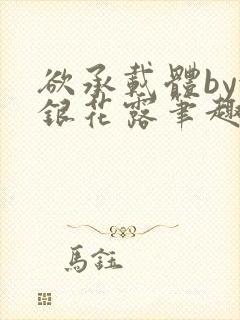 欲承載體by
銀花露筆趣
馬鈺